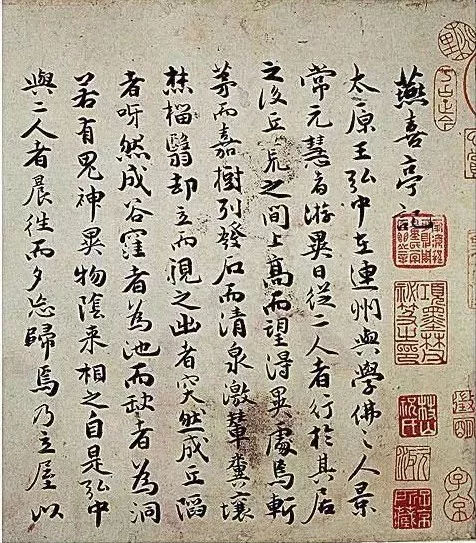 燕喜亭記
太原王弘中在連州與學佛〻人景
常元慧者游異日從二人者行於其居
之後丘荒之間上高而望得異處焉斬
茅而嘉樹列發石而清泉激輦糞壤
焚椔翳却立而視之出者突然成丘陷
者呀然成谷窪者為池而缺者為洞
若有鬼神異物陰来相之自是弘中
與二人者晨往而夕忘歸焉乃立屋以
項墨林
祕笈之印
子京